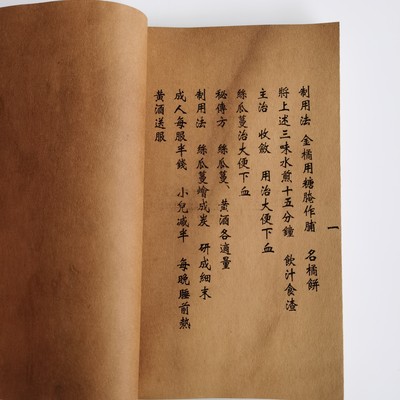 一
制用法 金橘用糖腌作脯 名橘餅
將上述三味水煎十五分鐘 飲汁食渣
主治 收斂 用治大便下血
絲瓜蔓治大便下血
秘傳方 絲瓜蔓、黃酒各適量
制用法 絲瓜蔓燴成炭 研成細末
成人每服半錢 小兒減半 每晚睡前熱
黃酒送服